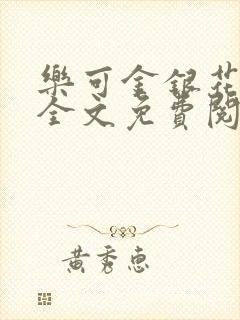 樂可金銀花
全文免費閱
黃秀惠